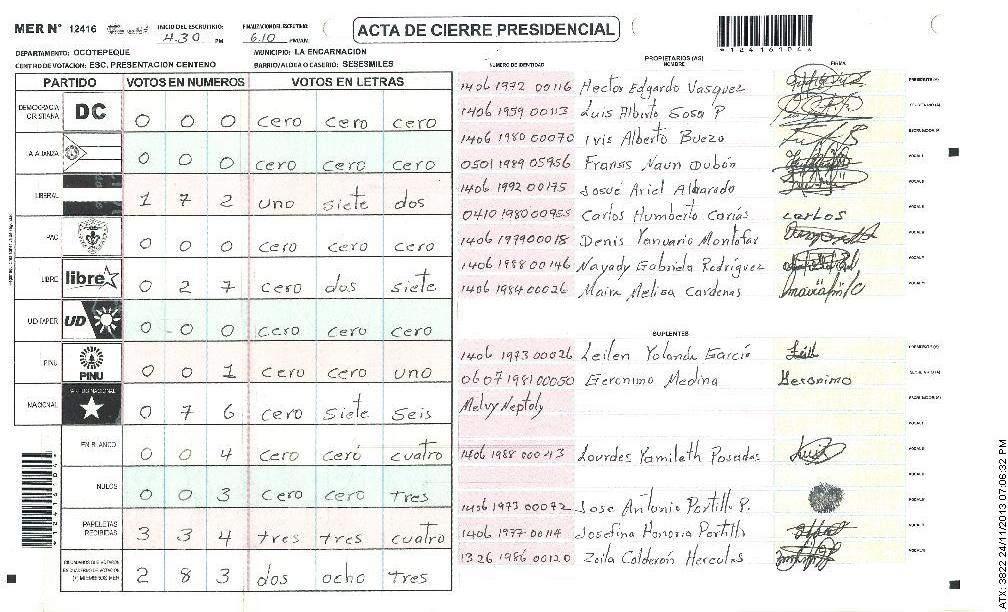 MER N° 12416 INICIO DEL ESCRUTINIO: 4.30 PM FINALIZACION DEL ESCRUTINIO: 6.10 PM/AM. ACTA DE CIERRE PRESIDENCIAL
DEPARTAMENTO: OCOTEPEQUE MUNICIPIO: LA ENCARNACION
CENTRO DE VOTACION: ESC. PRESENTACION CENTENO BARRIO/ALDEA O CASERIO: SESESMILES
PARTIDO VOTOS EN NUMEROS VOTOS EN LETRAS
DEMOCRACIA CRISTIANA DC 0 0 0 cero cero cero
ALIANZA 0 0 0 cero cero cero
LIBERAL 1 7 2 uno siete dos
PAC 0 0 0 cero cero cero
LIBRE libre 0 2 7 cero dos siete
UD-FAPER UD 0 - 0 0 cero cero cero
PINU PINU 0 0 1 cero cero uno
NACIONAL PARTIDO NACIONAL 0 7 6 cero siete seis
EN BLANCO 0 0 4 cero cero cuatro
NULOS 0 0 3 cero cero tres
PAPELETAS RECIBIDAS 3 3 4 tres tres cuatro
CIUDADANOS QUE VOTARON EN CUADERNO DE VOTACION (+) MIEMBROS MER 2 8 3 dos ocho tres
PROPIETARIOS (AS)
NUMERO DE IDENTIDAD NOMBRE FIRMA
1406 1972 00116 Hector Edgardo Vasquez PRESIDENTE (A)
1406 1959 00113 Luis Alberto Sosa P SECRETARIO (A)
1406 1980 00070 Ivis Alberto Buezo ESCRUTADOR (A)
0501 1989 05956 Fransis Naun Dubón VOCAL I
1406 1992 00175 Josué Ariel Alvarado
0410 1980 00925 Carlos Humberto Carias carlos
1406 1979 00018 Denis Yanuario Montofar
1406 1988 00146 Nayady Gabriela Rodríguez
1406 1984 00026 Maira Melisa Cardenas
SUPLENTES
1406 1973 00026 Leilen Yolanda García PRESIDENTE (A)
0607 1981 00050 Geronimo Medina Geronimo SECRETARIO (A)
Melvy Neptoly ESCRUTADOR (A)
1406 1988 00043 Lourdes Yamileth Posadas
1406 1973 00072 Jose Antonio Portillo P.
1406 1977 00114 Josefina Honoria Portillo
1326 1986 00120 Zoila Calderon Hercules
ATX: 3822 24/11/2013 07:06:32 PM